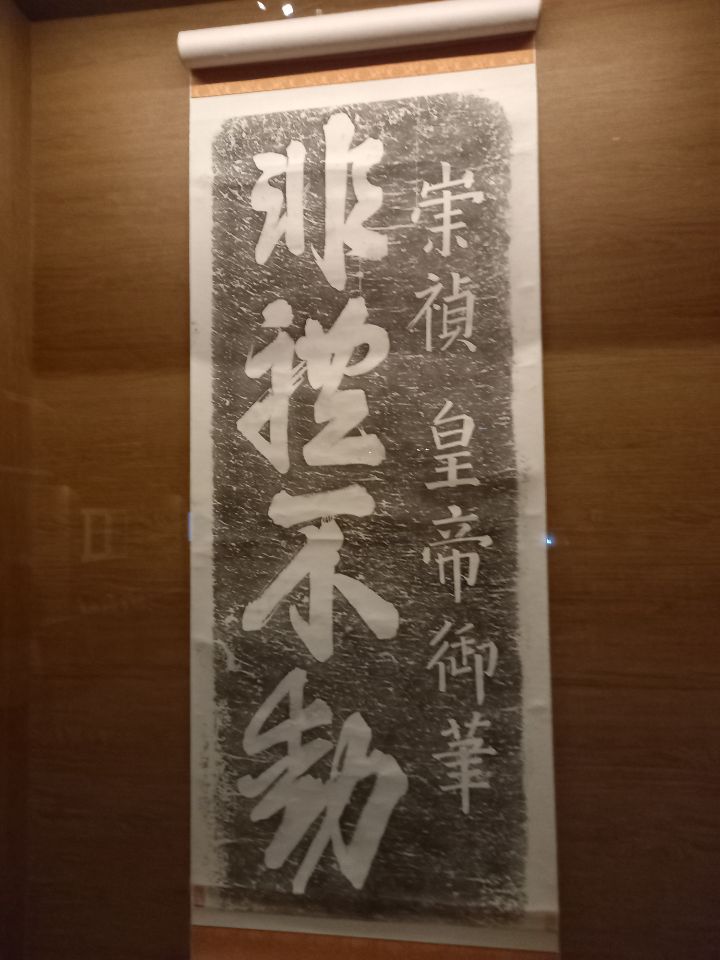 崇禎皇帝御筆
非禮不動